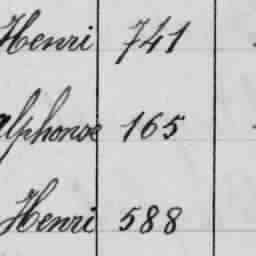 Henri 741
Alphonse 165
Henri 588